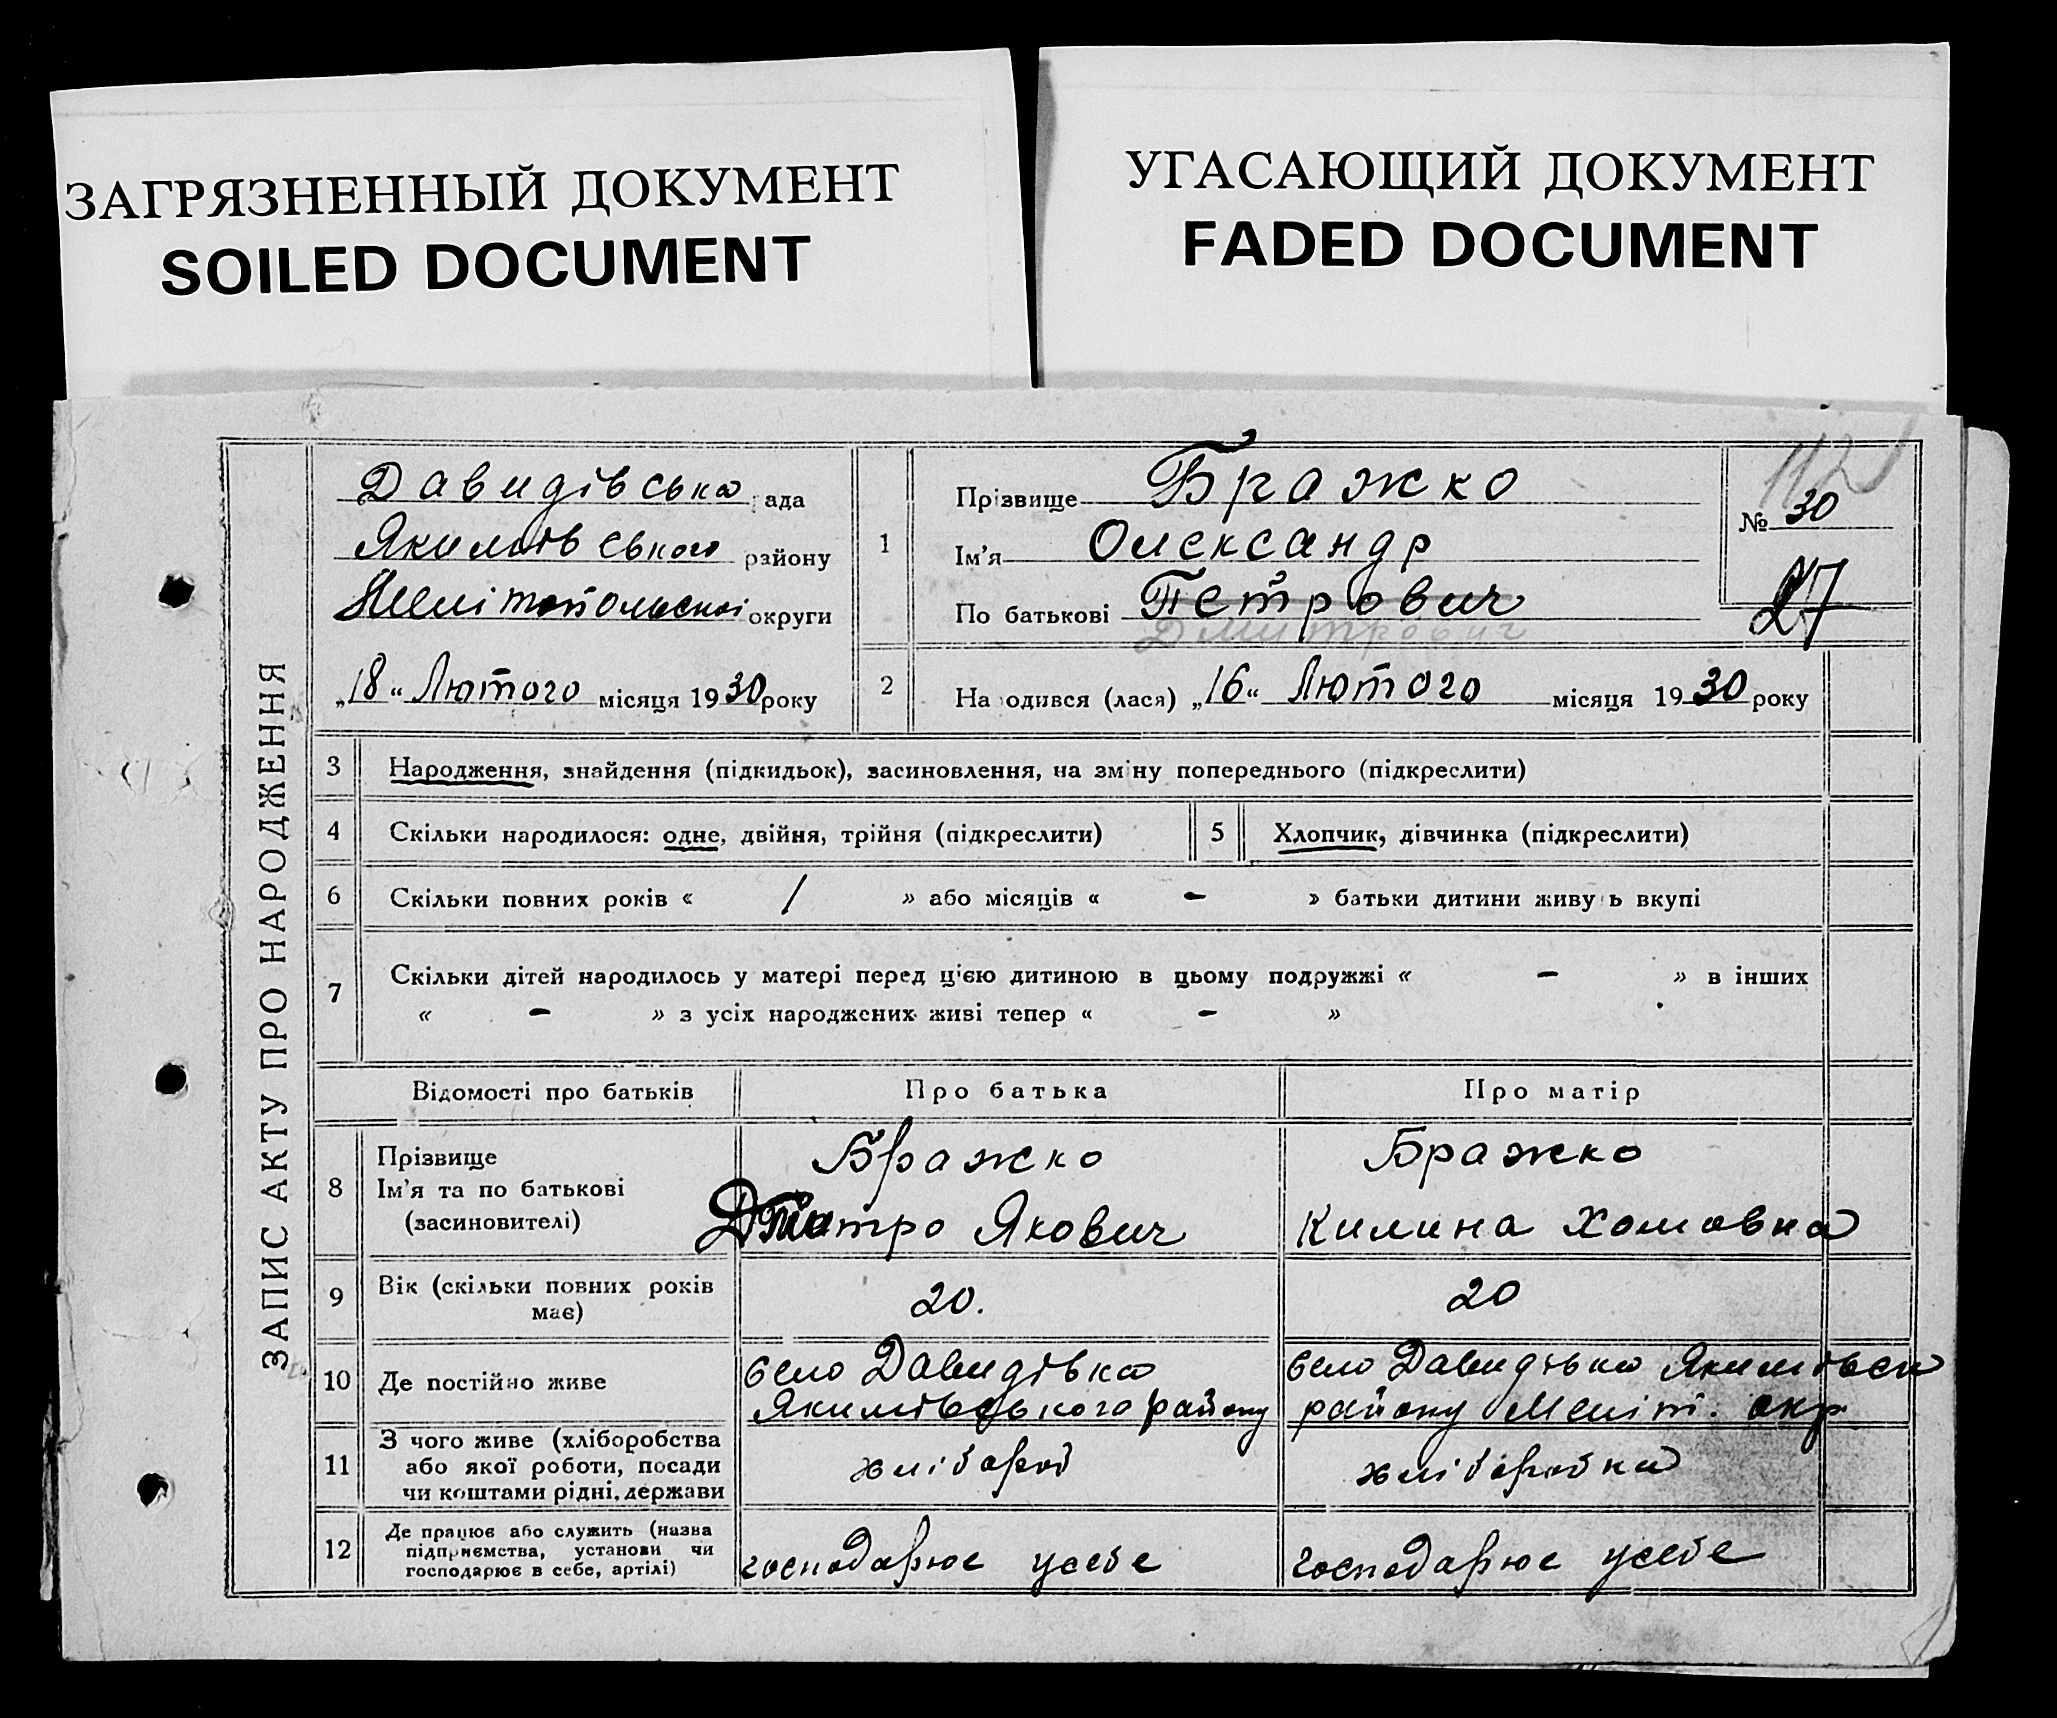 ЗАГРЯЗНЕННЫЙ ДОКУМЕНТ
SOILED DOCUMENT
УГАСАЮЩИЙ ДОКУМЕНТ
FADED DOCUMENT
ЗАПИС АКТУ ПРО НАРОДЖЕННЯ
Давидівська рада
Якимівського району
Мелітопольської округи
„18“ Лютого місяця 1930 року
1
Прізвище Бражко
Ім'я Олександр
По батькові Петрович
Дмитрович
112
№ 30
27
2
На одився (лася) „16“ Лютого місяця 1930 року
3 Народження, знайдення (підкидьок), засиновлення, на зміну попереднього (підкреслити)
4 Скільки народилося: одне, двійня, трійня (підкреслити) 5 Хлопчик, дівчинка (підкреслити)
6 Скільки повних років « 1 » або місяців « - » батьки дитини живу ь вкупі
7 Скільки дітей народилось у матері перед цією дитиною в цьому подружжі « - » в інших
« - » з усіх народжених живі тепер « - »
Відомості про батьків Про батька Про матір
8 Прізвище
Ім'я та по батькові
(засиновителі)
Бражко
Дмитро Якович
Бражко
Килина Хомовна
9 Вік (скільки повних років
має)
20. 20
10 Де постійно живе
село Давидівка
Якимівського району
село Давидівка Якимівськ
району Меліт. окр.
11 З чого живе (хліборобства
або якої роботи, посади
чи коштами рідні, держави
хлібороб
хліборобка
12 Де працює або служить (назва
підприємства, установи чи
господарює в себе, артілі)
господарює усебе
господарює усебе